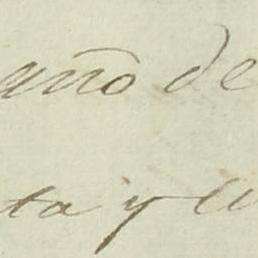 año de
ta y